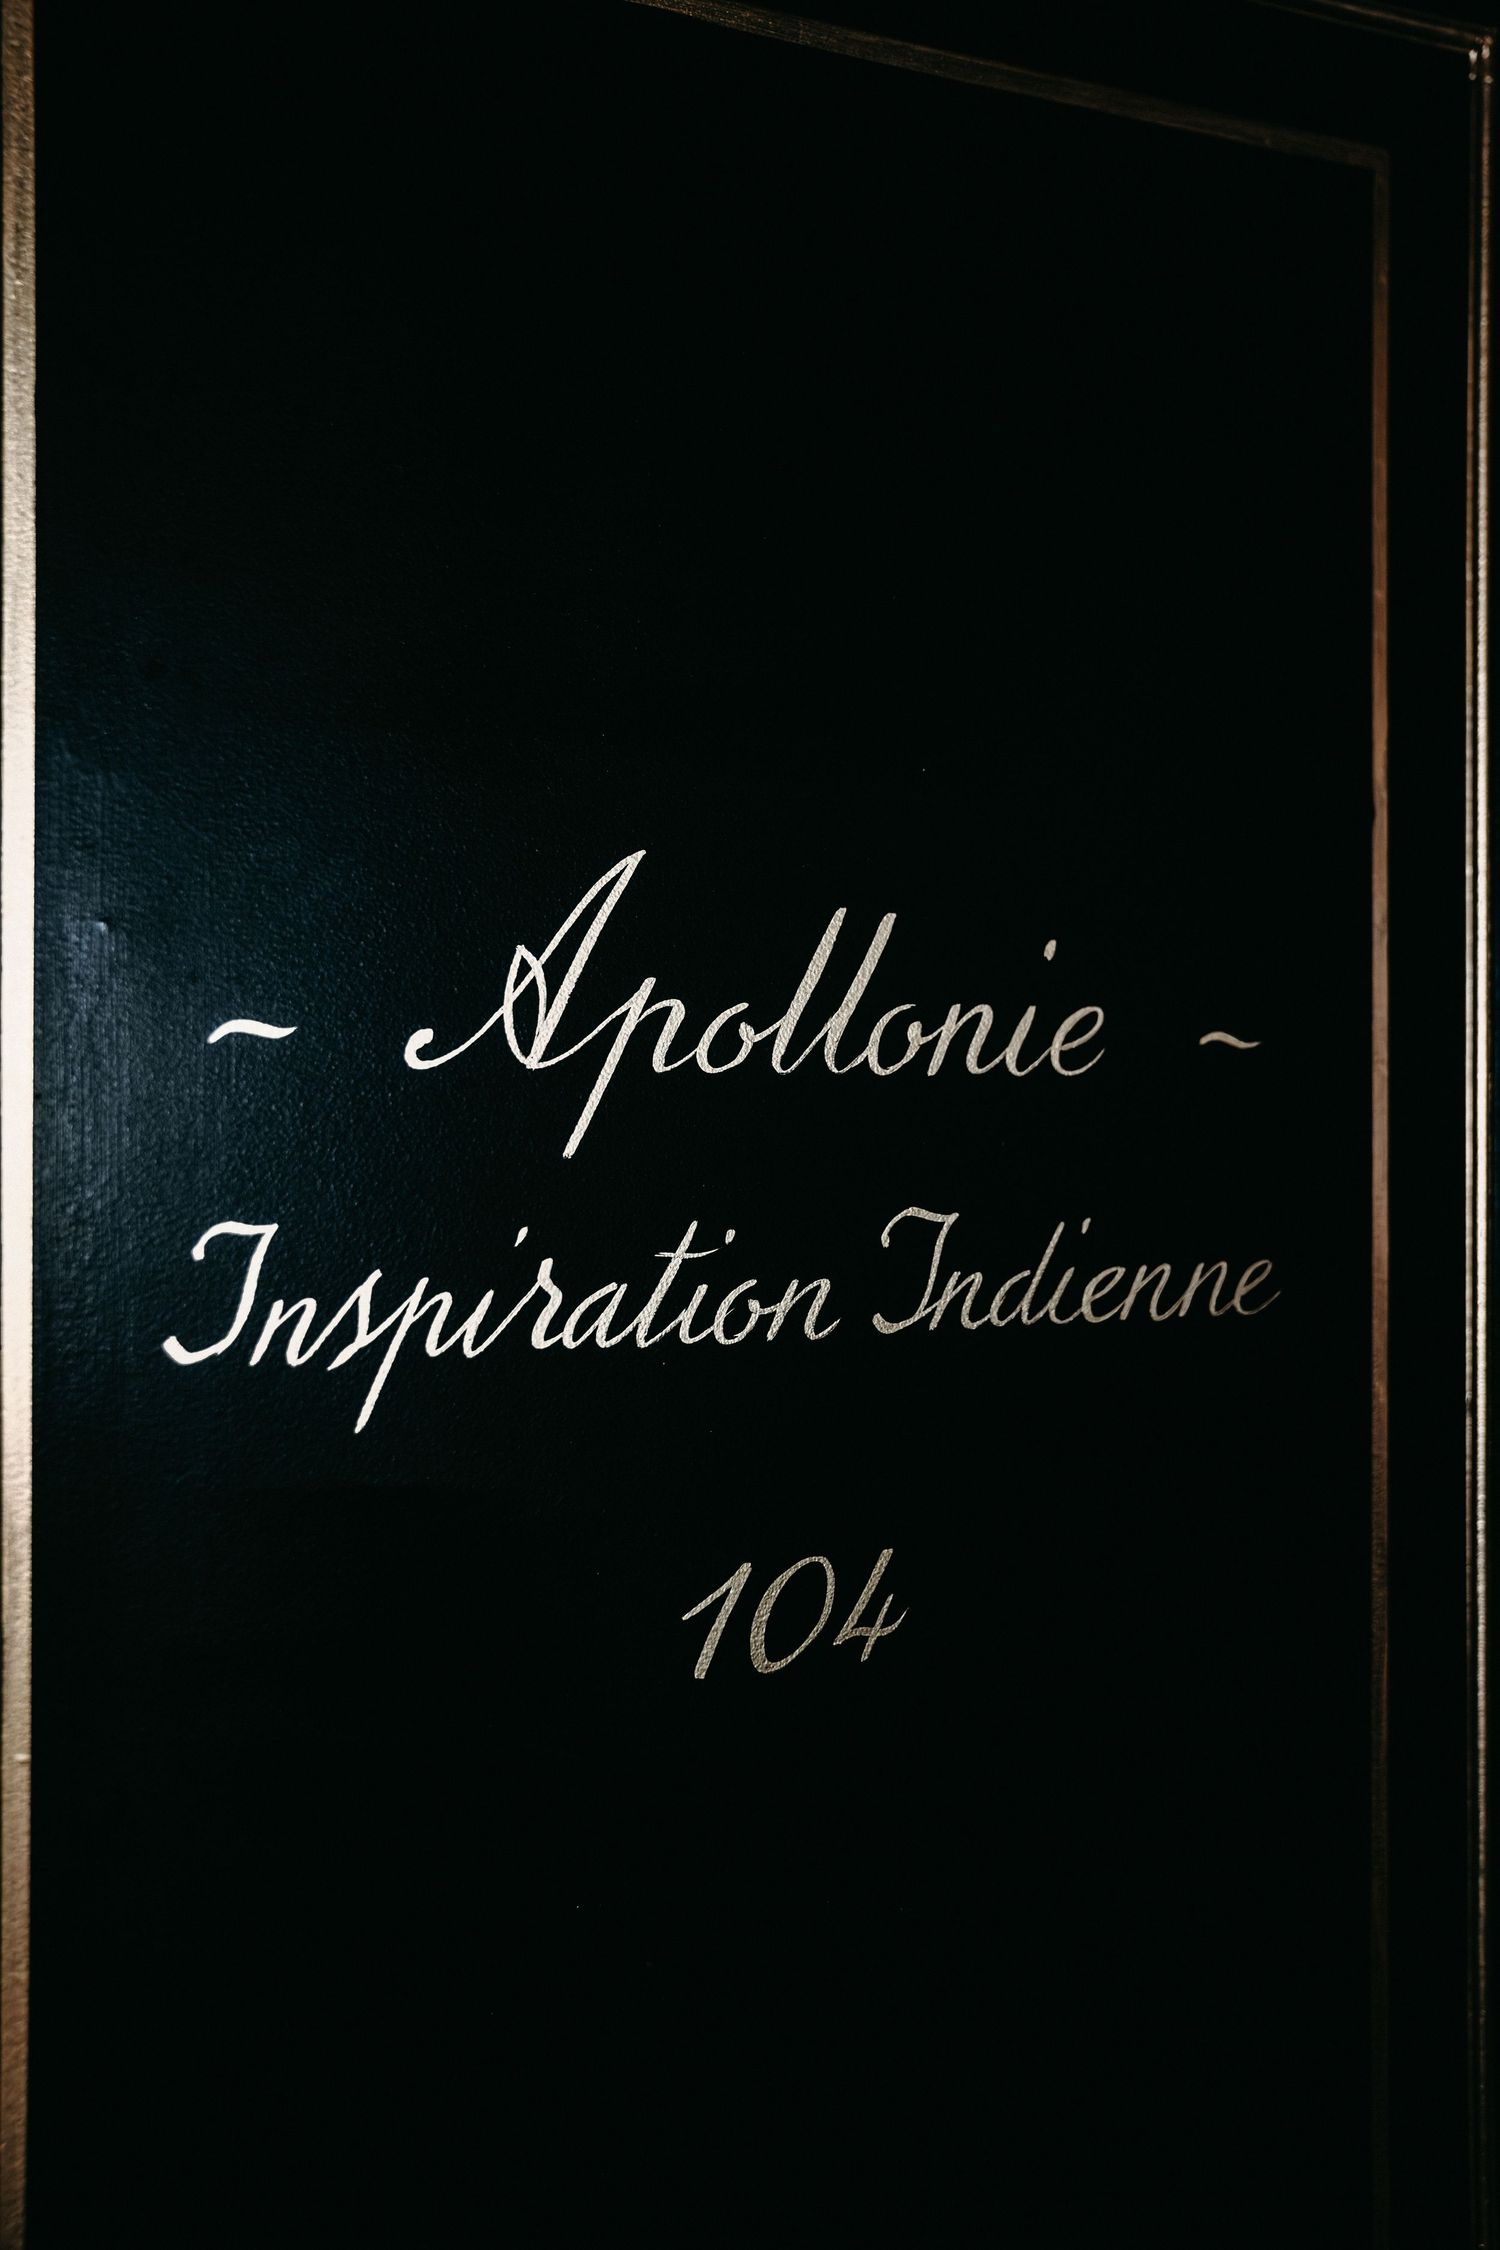 ~ Apollonie ~
Inspiration Indienne
104